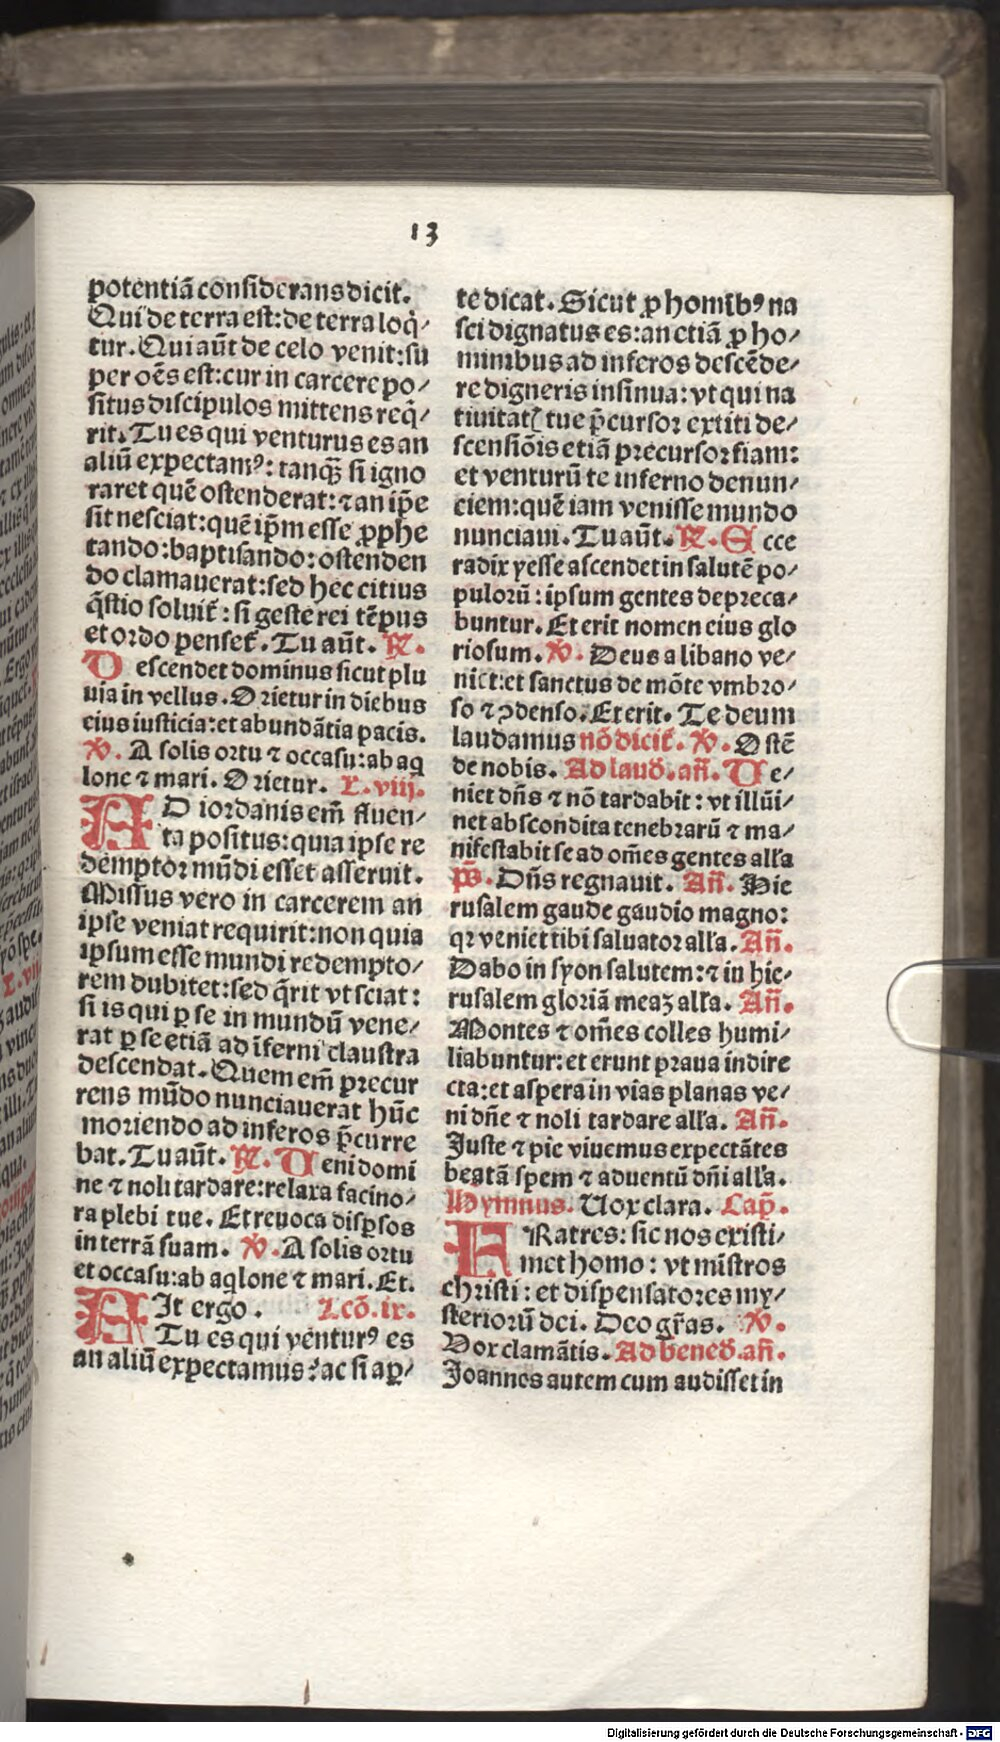 13
potentiā considerans dicit.
Qui de terra est: de terra loq̄/
tur. Qui aūt de celo venit: su
per oēs est: cur in carcere po/
situs discipulos mittens req̄/
rit. Tu es qui venturus es an
aliū expectamꝰ: tanq̄ȝ si igno
raret quē ostenderat: ⁊ an ip̄e
sit nesciat: quē ip̄m esse ꝓphe
tando: baptisando: ostenden
do clamauerat: sed hec citius
q̄stio soluit᷑: si geste rei tēpus
et ordo penset᷑. Tu aūt. ℟.
Descendet dominus sicut plu
uia in vellus. Orietur in diebus
eius iusticia: et abundātia pacis.
℣. A solis ortu ⁊ occasu: ab aq
lone ⁊ mari. Orietur. L. viij.
AD iordanis em̄ fluen/
ta positus: quia ipse re
demptor mūdi esset asseruit.
Missus vero in carcerem an
ipse veniat requirit: non quia
ipsum esse mundi redempto/
rem dubitet: sed q̄rit vt sciat:
si is qui ꝑ se in mundū vene/
rat ꝑ se etiā ad īferni claustra
descendat. Quem em̄ precur
rens mūdo nunciauerat hūc
moriendo ad inferos p̄curre
bat. Tu aūt. ℟. Veni domi
ne ⁊ noli tardare: relaxa facino/
ra plebi tue. Et reuoca disꝑsos
in terrā suam. ℣. A solis ortu
et occasu: ab aqlone ⁊ mari. Et.
AIt ergo. Lcō. ix.
Tu es qui venturꝰ es
an aliū expectamus: ac si aꝑ/
te dicat. Sicut ꝓ homībꝰ na
sci dignatus es: an etiā ꝓ ho/
minibus ad inferos descēde/
re digneris insinua: vt qui na
tiuitatꝭ tue p̄cursor extiti de/
scensiōis etiā precursor fiam:
et venturū te inferno denun/
ciem: quē iam venisse mundo
nunciaui. Tu aūt. ℟. Ecce
radix yesse ascendet in salutē po/
pulorū: ipsum gentes depreca/
buntur. Et erit nomen eius glo
riosum. ℣. Deus a libano ve/
niet: et sanctus de mōte vmbro/
so ⁊ ꝯdenso. Et erit. Te deum
laudamus nō dicit᷑. ℣. Ostē
de nobis. Ad laud. an̄. Ue/
niet dn̄s ⁊ nō tardabit: vt illūi/
net abscondita tenebrarū ⁊ ma/
nifestabit se ad om̄es gentes alľa
ps̄. Dn̄s regnauit. An̄. Hie
rusalem gaude gaudio magno:
qꝛ veniet tibi saluator alľa. An̄.
Dabo in syon salutem: ⁊ in hie/
rusalem gloriā meaȝ alľa. An̄.
Montes ⁊ om̄es colles humi/
liabuntur: et erunt praua in dire
cta: et aspera in vias planas ve/
ni dn̄e ⁊ noli tardare alľa. An̄.
Juste ⁊ pie viuemus expectātes
beatā spem ⁊ aduentū dn̄i alľa.
Hymnus. Uox clara. Cap̄.
FRatres: sic nos existi/
met homo: vt mīstros
christi: et dispensatores my/
steriorū dei. Deo gr̄as. ℣.
Vox clamātis. Ad bened. an̄.
Joannes autem cum audisset in
Digitalisierung gefördert durch die Deutsche Forschungsgemeinschaft - DFG